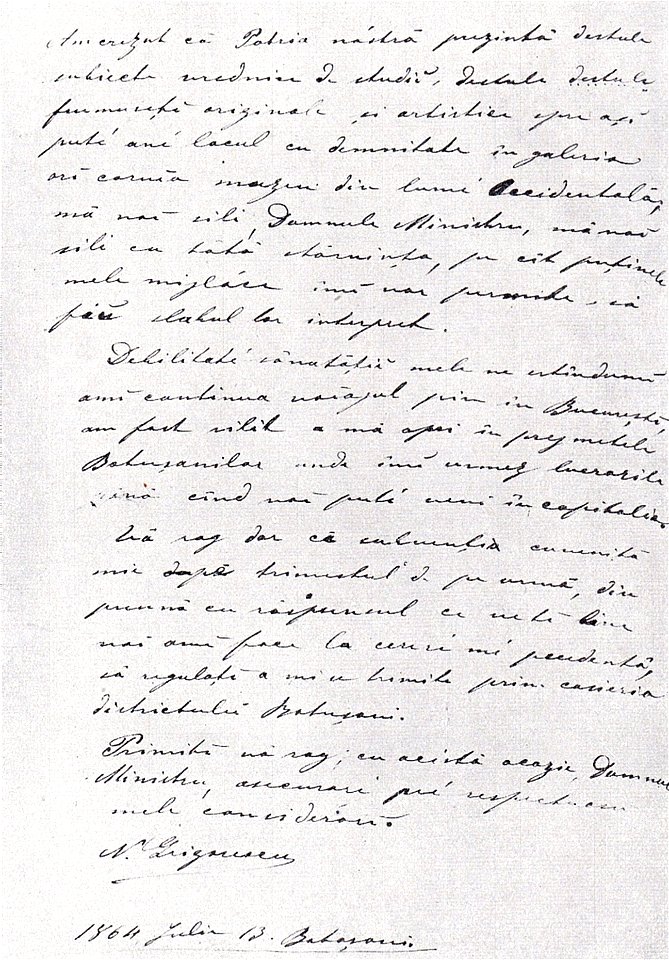 Am crezut că Patria nóstră prezintă destule
subiecte vrednice de studiŭ, destule destule
frumuseță originale și artistice spre a-șĭ
puté lacul cu demnitate în galeria
orĭ căruĭa muzeu din lumé Occidentală;
mă voĭ sili, Domnule Ministru, mă voĭ
sili cu tótă stăruința, pe cît puținele
mele mijlóce îmĭ vor permite, să
fiŭ slabul lor interpret.
Debilitaté sănătățiĭ mele ne
amĭ continua voiajul pin în Bucureștĭ,
am fost silit a mă opri în prejmetele
Botușanilor unde îmĭ urmez lucrările
pină cînd voĭ puté veni în capitalia.
Vă rog dar că subvenția cuvenită
mie după trimestrul de pe urmă, din
preună cu răspunsul ce veți bine
voi amĭ face la cereré mé precedentă,
să regulați a mi se trimite prin casieria
districtuluĭ Botușani.
Primiți vă rog, cu acéstă ocazie, Domnule
Ministru, asecuraré pré respectuos
mele considerări.
N. Grigorescu
1864 Julie 13. Botoșani.